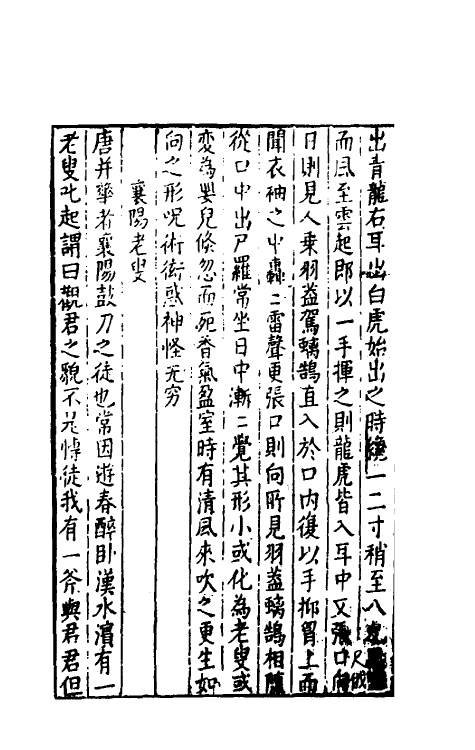 出青龍右耳出白虎始出之時纔一二寸稍至八九尺俄
而風至雲起即以一手揮之則龍虎皆入耳中又張口向
日則見人乗羽葢駕螭鵠直入於口内復以手抑胷上而
聞衣袖之中轟二雷聲更張口則向所見羽葢螭鵠相隨
從口中出尸羅常坐日中漸二覺其形小或化為老叟或
変為嬰兒倏忽而死香氣盈室時有清風来吹之更生如
向之形呪術衒惑神怪无穷
襄陽老叟
唐并華者襄陽鼓刀之徒也常因遊春醉卧漢水濵有一
老叟叱起謂曰觀君之貌不是博徒我有一斧與君君但